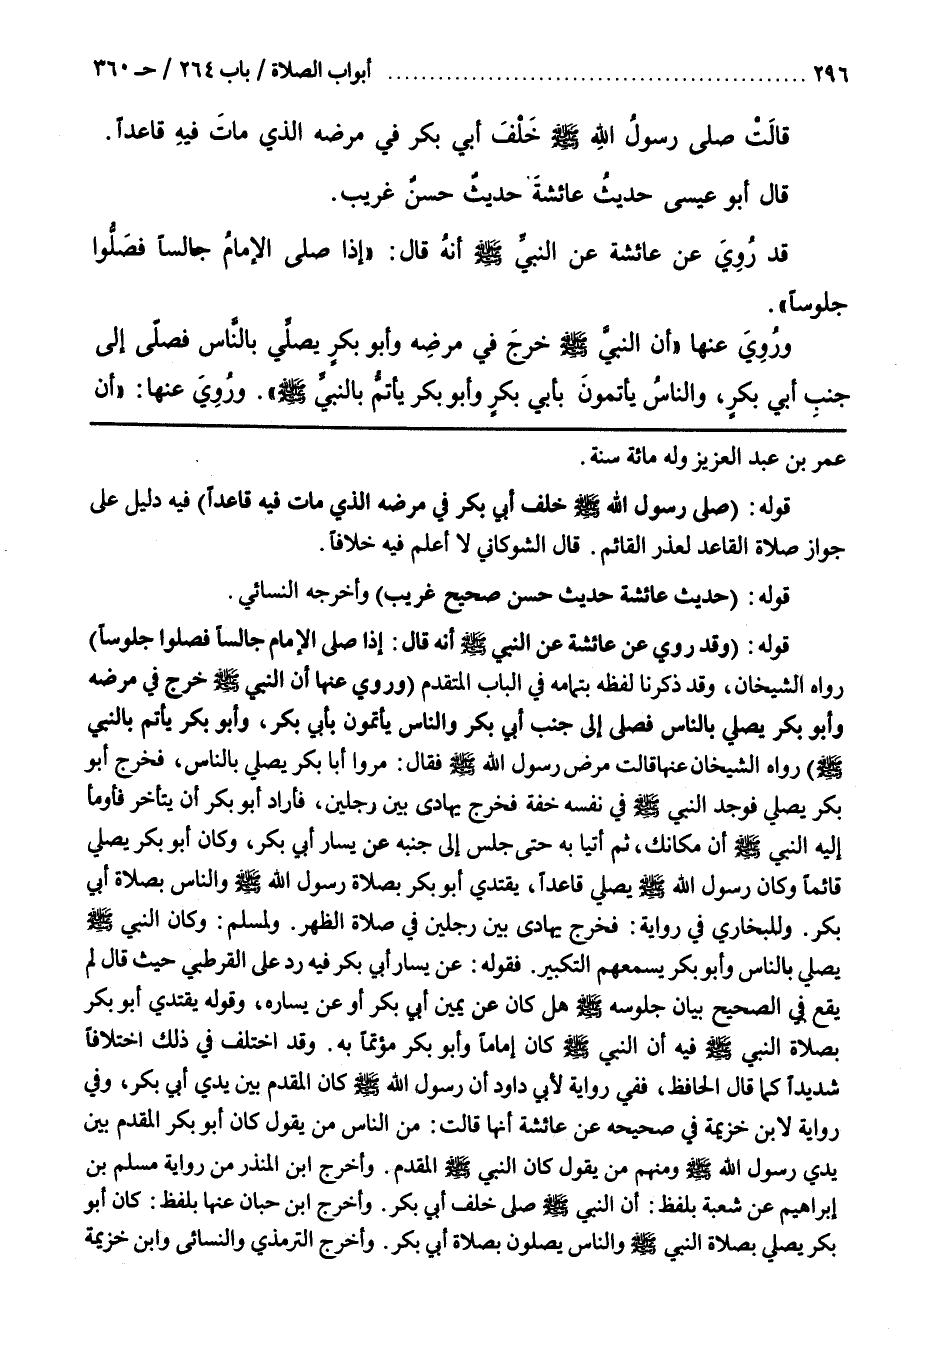 ٢٩٦ ........................................ أبواب الصلاة / باب ٢٦٤ / حـ ٣٦٠
قالَتْ صلى رسولُ اللهِ ﷺ خَلْفَ أبي بكر في مرضه الذي ماتَ فيهِ قاعداً.
قال أبو عيسى حديثُ عائشةَ حديثٌ حسنٌ غريب.
قد رُوِيَ عن عائشة عن النبيِّ ﷺ أنهُ قال: «إذا صلى الإمامُ جالساً فصَلُّوا
جلوساً».
ورُوِيَ عنها «أن النبيَّ ﷺ خرجَ في مرضِه وأبو بكرٍ يصلِّي بالنَّاس فصلّى إلى
جنبِ أبي بكرٍ، والناسُ يأتمونَ بأبي بكرٍ وأبو بكر يأتمُّ بالنبيِّ ﷺ». ورُوِيَ عنها: «أن
عمر بن عبد العزيز وله مائة سنة.
قوله: (صلى رسول الله ﷺ خلف أبي بكر في مرضه الذي مات فيه قاعداً) فيه دليل على
جواز صلاة القاعد لعذر القائم. قال الشوكاني لا أعلم فيه خلافاً.
قوله: (حديث عائشة حديث حسن صحيح غريب) وأخرجه النسائي.
قوله: (وقد روي عن عائشة عن النبي ﷺ أنه قال: إذا صلى الإمام جالساً فصلوا جلوساً)
رواه الشيخان، وقد ذكرنا لفظه بتمامه في الباب المتقدم (وروي عنها أن النبي ﷺ خرج في مرضه
وأبو بكر يصلي بالناس فصلى إلى جنب أبي بكر والناس يأتمون بأبي بكر، وأبو بكر يأتم بالنبي
ﷺ) رواه الشيخان عنهاقالت مرض رسول الله ﷺ فقال: مروا أبا بكر يصلي بالناس، فخرج أبو
بكر يصلي فوجد النبي ﷺ في نفسه خفة فخرج يهادى بين رجلين، فأراد أبو بكر أن يتأخر فأومأ
إليه النبي ﷺ أن مكانك، ثم أتيا به حتى جلس إلى جنبه عن يسار أبي بكر، وكان أبو بكر يصلي
قائماً وكان رسول الله ﷺ يصلي قاعداً، يقتدي أبو بكر بصلاة رسول الله ﷺ والناس بصلاة أبي
بكر. وللبخاري في رواية: فخرج يهادى بين رجلين في صلاة الظهر. ولمسلم: وكان النبي ﷺ
يصلي بالناس وأبو بكر يسمعهم التكبير. فقوله: عن يسار أبي بكر فيه رد على القرطبي حيث قال لم
يقع في الصحيح بيان جلوسه ﷺ هل كان عن يمين أبي بكر أو عن يساره، وقوله يقتدي أبو بكر
بصلاة النبي ﷺ فيه أن النبي ﷺ كان إماماً وأبو بكر مؤتماً به. وقد اختلف في ذلك اختلافاً
شديداً كما قال الحافظ، ففي رواية لأبي داود أن رسول الله ﷺ كان المقدم بين يدي أبي بكر، وفي
رواية لابن خزيمة في صحيحه عن عائشة أنها قالت: من الناس من يقول كان أبو بكر المقدم بين
يدي رسول الله ﷺ ومنهم من يقول كان النبي ﷺ المقدم. وأخرج ابن المنذر من رواية مسلم بن
إبراهيم عن شعبة بلفظ: أن النبي ﷺ صلى خلف أبي بكر. وأخرج ابن حبان عنها بلفظ: كان أبو
بكر يصلي بصلاة النبي ﷺ والناس يصلون بصلاة أبي بكر. وأخرج الترمذي والنسائى وابن خزيمة